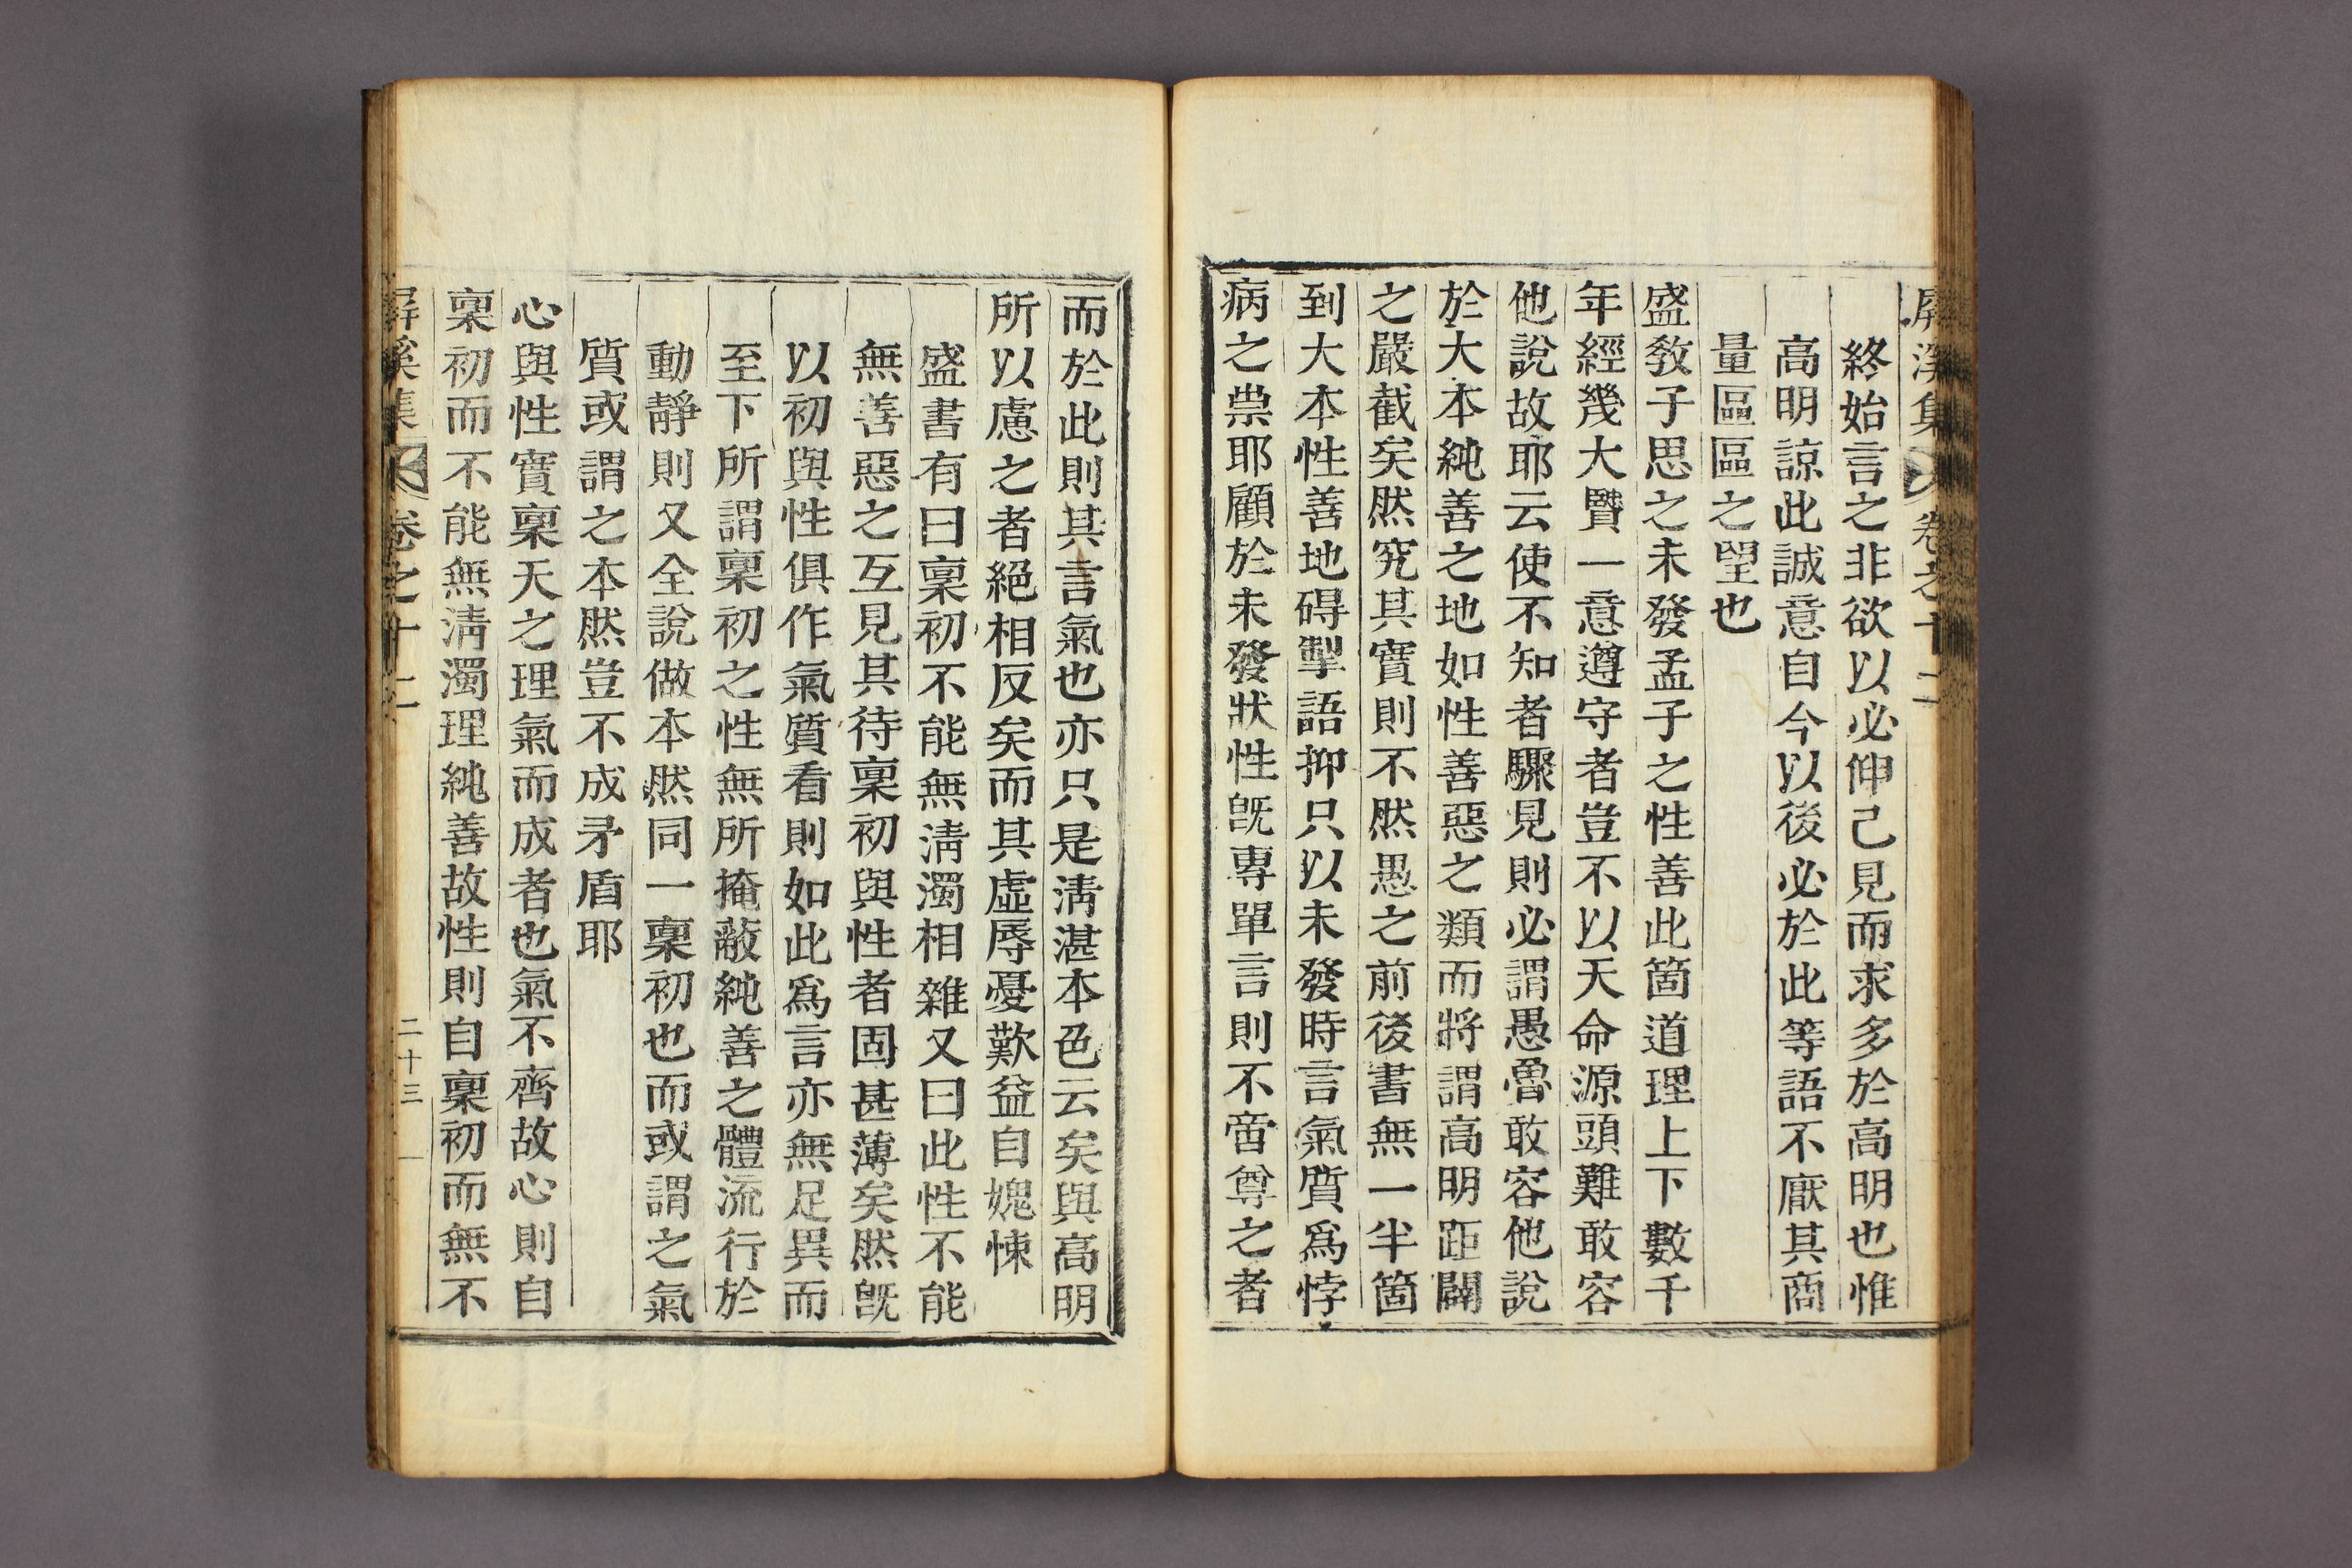 屏溪集 卷之十二
終始言之非欲以必伸己見而求多於高明也惟
高明諒此誠意自今以後必於此等語不厭其商
量區區之望也
盛敎子思之未發孟子之性善此箇道理上下數千
年經幾大賢一意遵守者豈不以天命源頭難敢容
他說故耶云使不知者驟見則必謂愚魯敢容他說
於大本純善之地如性善惡之類而將謂高明距闢
之嚴截矣然究其實則不然愚之前後書無一半箇
到大本性善地碍掣語抑只以未發時言氣質爲悖
病之祟耶顧於未發狀性旣專單言則不啻尊之者
而於此則其言氣也亦只是淸湛本色云矣與高明
所以慮之者絕相反矣而其虛辱憂歎益自媿悚
盛書有曰稟初不能無淸濁相雜又曰此性不能
無善惡之互見其待稟初與性者固甚薄矣然旣
以初與性俱作氣質看則如此爲言亦無足異而
至下所謂稟初之性無所掩蔽純善之體流行於
動靜則又全說做本然同一稟初也而或謂之氣
質或謂之本然豈不成矛盾耶
心與性實稟天之理氣而成者也氣不齊故心則自
稟初而不能無淸濁理純善故性則自稟初而無不
屏溪集 卷之十二 二十三